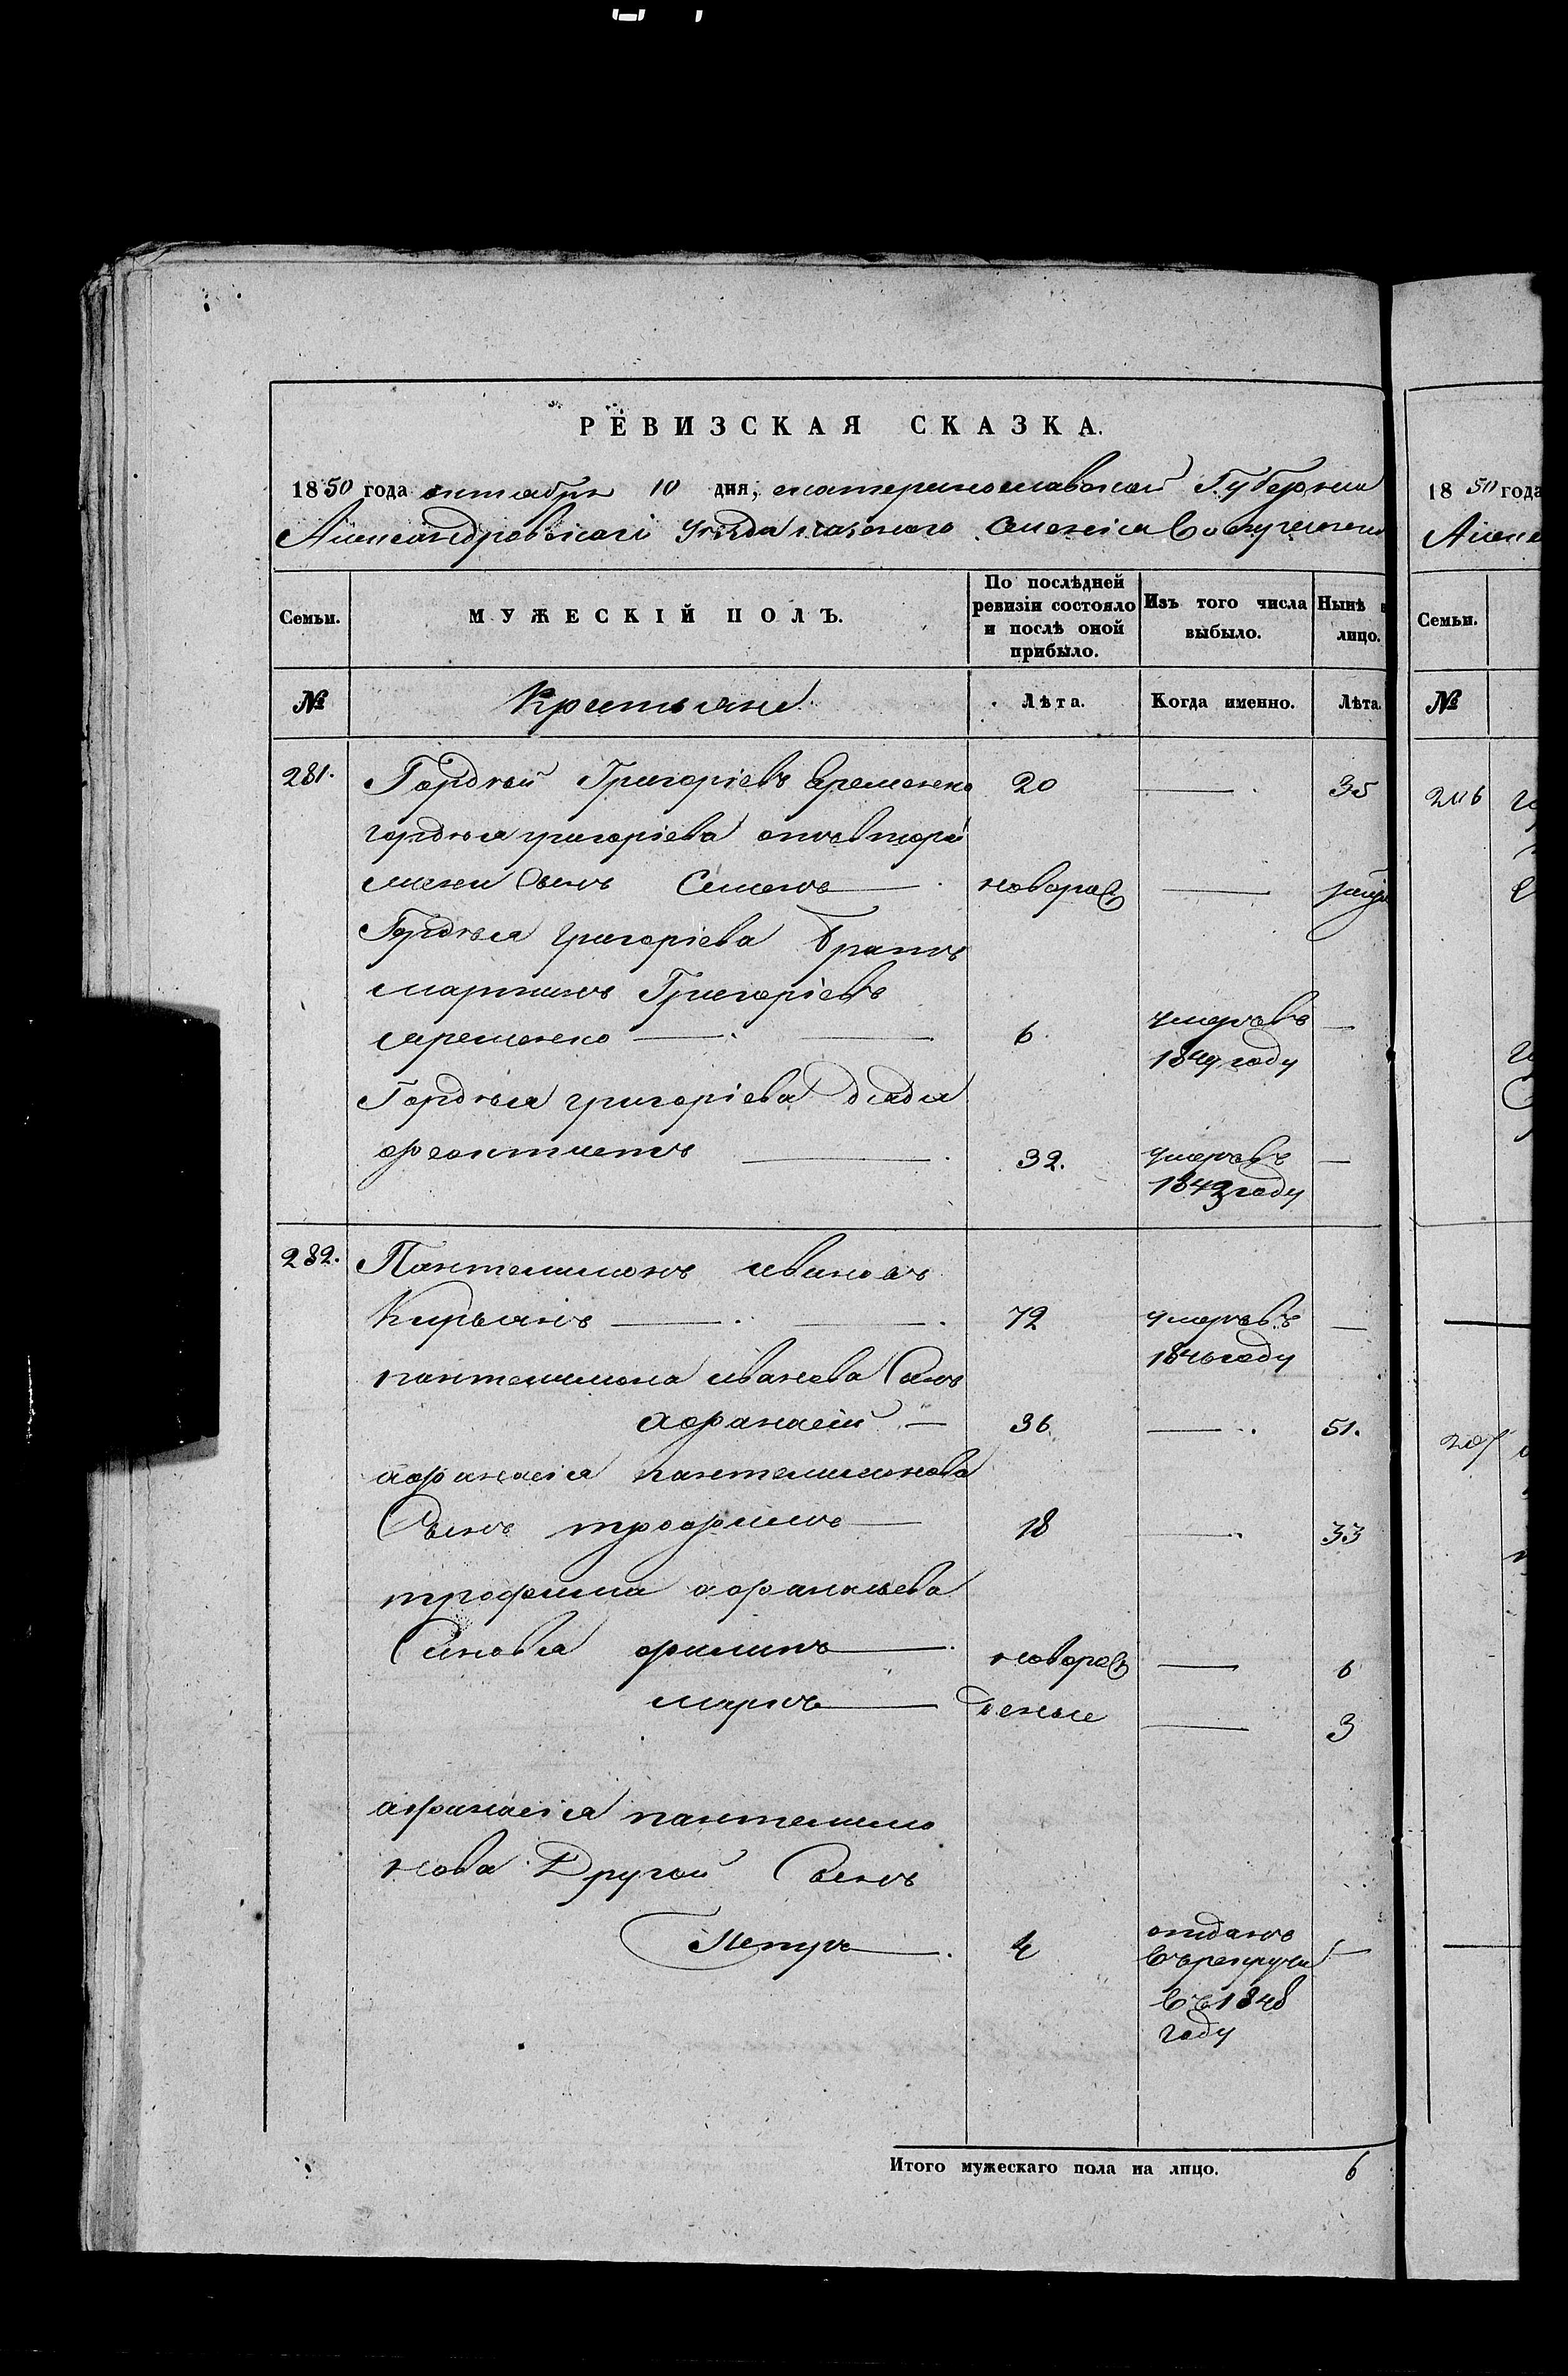 РЕВИЗСКАЯ СКАЗКА.
1850 года октября 10 дня, екатеринославской Губернии
Александровскаго уезда казеного селенія
Семьи. МУЖЕСКІЙ ПОЛЪ. По послѣдней ревизіи состояло и послѣ оной прибыло. Изъ того числа выбыло. Нынѣ лицо.
№ Крестьяне Лѣта. Когда именно. Лѣта.
281. Гордѣй Григоріевъ Яременко 20 — 35
гордѣя григоріева отъ второй
жены Сынъ Семенъ — новорож —
Гордѣя Григоріева Братъ
мартинъ Григоріевъ
яременко — 6. умеръ въ —
году
Гордѣя григоріева дядя
феоктистъ — 32. умеръ въ —
1843 году
282. Пантелимонъ ивановъ
Кирьянъ — 72 умеръ въ —
1846 году
пантелимона иванова Сынъ
афанасій — 36 — 51.
афанасія пантелимонова
Сынъ трофимъ — 18 — 33
трофима афанасьева
Синовья филипъ — новорож — 6
маркъ — деные — 3
афанасія пантелимо
нова Другой Сынъ
Петръ — 4 отданъ
въ рекруты —
въ 1848
году
Итого мужескаго пола на лицо. 6
18 50 года
Семьи.
№
206
207